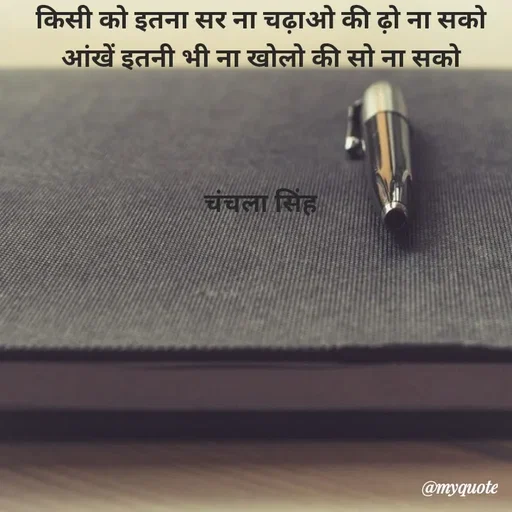 किसी को इतना सर ना चढ़ाओ की ढ़ो ना सको
आंखें इतनी भी ना खोलो की सो ना सको
चंचला सिंह
@myquote